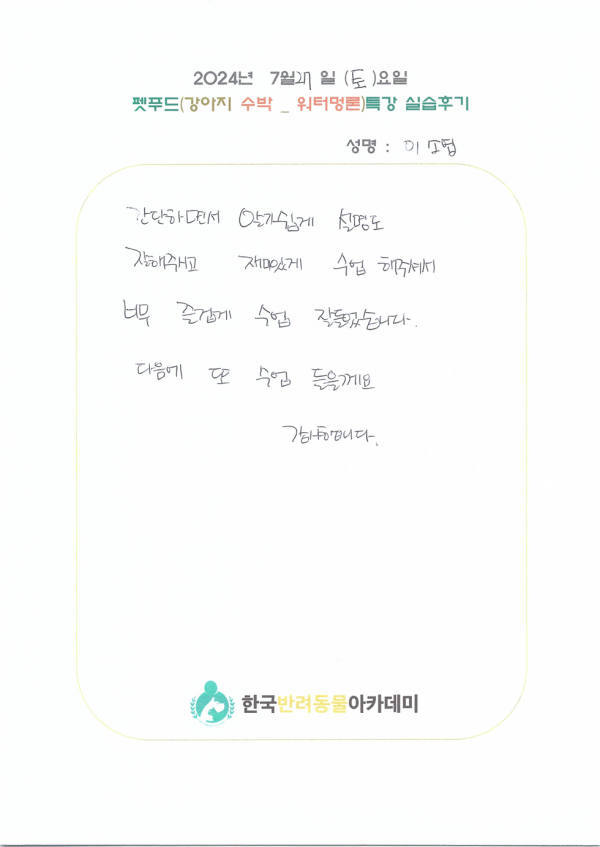 2024년 7월 27일 (토)요일
펫푸드(강아지 수박 _ 워터멍론)특강 실습후기
성명 : 이
간단하면서 알기쉽게 설명도
잘해주시고 재미있게 수업 해주셔서
너무 즐겁게 수업 잘들었습니다.
다음에 또 수업 들을께요
감사합니다.
한국반려동물아카데미